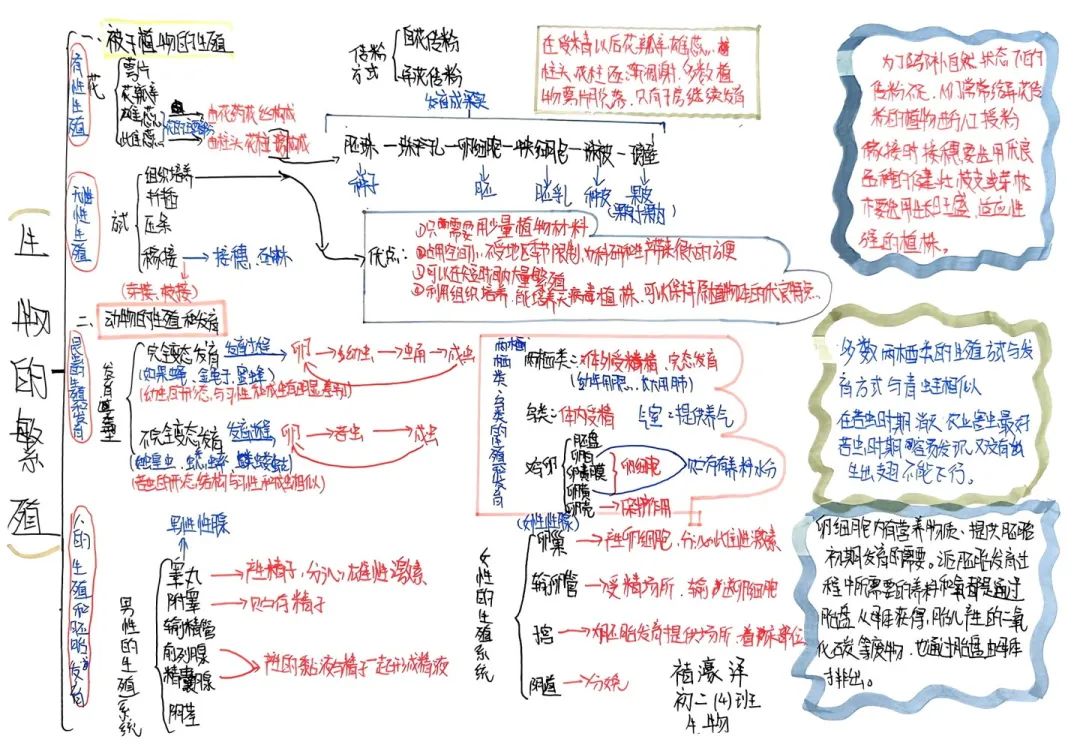 生物的繁殖
一、被子植物的生殖
有性生殖
花
萼片
花瓣
雄蕊
雌蕊
由花药花丝构成
由柱头花柱子房构成
传粉方式
自花传粉
异花传粉
在受精以后花瓣、雄蕊、
柱头、花柱逐渐凋谢,多数植
物萼片脱落,只有子房继续发育
发育成果实
胚珠
珠孔
卵细胞
种子
胚
胚乳
种皮
果皮
无性生殖
组织培养
扦插
压条
嫁接
接穗、砧木
(芽接、枝接)
优点:
①只需要用少量植物材料
②占用空间小,不受地区季节限制,为科研和生产带来很大的方便
③可以在短时间内大量繁殖
④利用组织培养,能培养无病毒植株,可以保持原植物本的优良特点
为了弥补自然状态下的
传粉不足,人们常常给异花传
粉的植物进行人工授粉
嫁接时接穗要选用优良
品种的健壮枝或芽,砧
木要选用生长旺盛,适应性
强的植株。
二、动物的生殖和发育
昆虫的生殖和发育
发育类型
完全变态发育
发育过程
卵
幼虫
蛹
成虫
(如果蝇、金龟子、蜜蜂)
(幼虫的形态与习性和成虫有明显差别)
不完全变态发育
发育过程
卵
若虫
成虫
(若虫的形态结构与习性和成虫相似)
两栖类、鸟类的生殖和发育
两栖类:体外受精,变态发育
(幼体用鳃,成体用肺)
鸟类:体内受精
气室:提供养气
鸟卵
胚盘
卵白
卵黄膜
卵黄
卵壳
卵细胞
贮存有养料水分
保护作用
多数两栖类的生殖方式与发
育方式与青蛙相似
在若虫时期消灭农业害虫最好
若虫时期容易发现,又没有
生出翅不能飞行。
人的生殖和胚胎发育
男性的生殖系统
男性性腺
睾丸
产生精子,分泌雄性激素
附睾
贮存精子
输精管
前列腺
精囊腺
产生的黏液与精子一起形成精液
阴茎
女性的生殖系统
(女性性腺)
卵巢
产生卵细胞,分泌雌性激素
输卵管
受精场所,输送卵细胞
子宫
为胚胎发育提供场所
阴道
分娩
卵细胞内有营养物质、提供胚胎
初期发育的需要。
程中所需要的养料和氧都是通过
胎盘从母体获得,胎儿产生的二氧
化碳等废物,也通过胎盘由母体
排出。
初二(4)班
生物